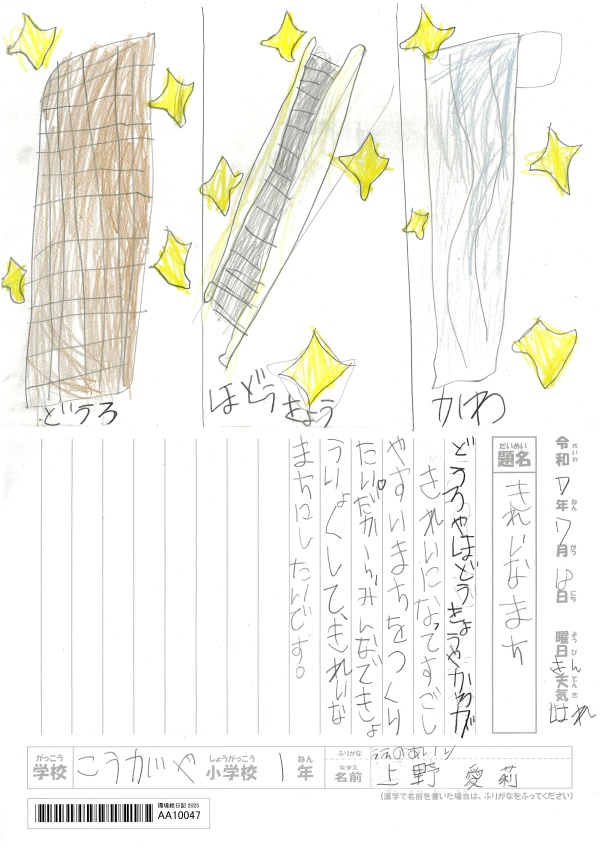 どうろ
ほどうきょう
かわ
令和7年7月18日
れいわ ねん がつ にち
曜日 きん
ようび
天気 はれ
てんき
だいめい
題名
きれいなまち
どうろやほどうきょうやかわが
きれいになってすごし
やすいまちをつくり
たい。だからみんなできょ
うりょくして、きれいな
まちにしたいです。
がっこう しょうがっこう ねん
学校 こうがや 小学校 1年
ふりがな うえのあいり
なまえ
名前 上野 愛莉
(漢字で名前を書いた場合は、ふりがなをふってください)
環境絵日記 2025
AA10047